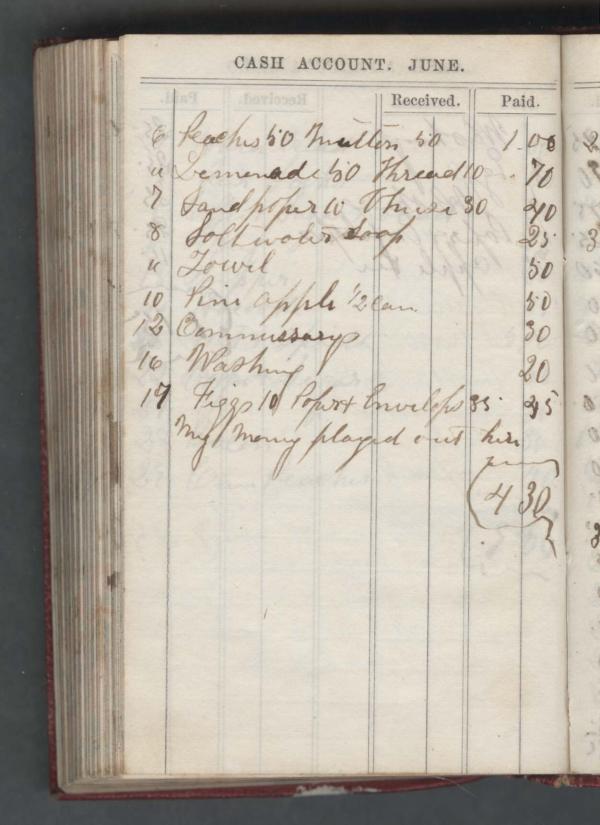 CASH ACCOUNT. JUNE.
Received. Paid.
6 Peaches 50 Mutton 50 1 00
" Lemonade 50 Thread 10 70
7 Sand paper 10 Chese 30 40
8 Soltwater Soap 25
" Towel 50
10 Pine apple 1/2 can 50
12 Commissary 30
16 Washing 20
17 Figgs 10 Paper & Envelops 35 45
My Money played out here
4 30